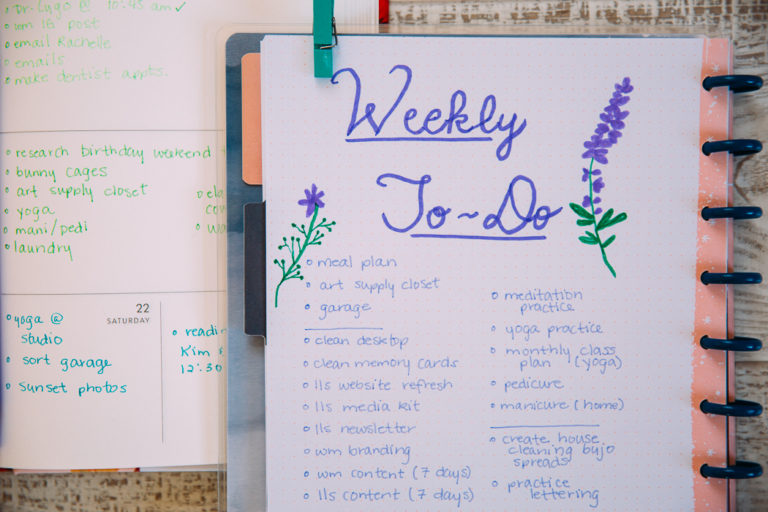 Dr. Lugo @ 10:45 am ✓
wm IG post
email Rachelle
emails
make dentist appts.
research birthday weekend
bunny cages
art supply closet
yoga
mani/pedi
laundry
22
SATURDAY
yoga @
studio
sort garage
sunset photos
Kim
12:30
Weekly
To-Do
meal plan
art supply closet
garage
clean desktop
clean memory cards
lls website refresh
lls media kit
lls newsletter
wm branding
wm content (7 days)
lls content (7 days)
meditation
practice
yoga practice
monthly class
plan (yoga)
pedicure
manicure (home)
create house
cleaning bujo
spreads
practice
lettering